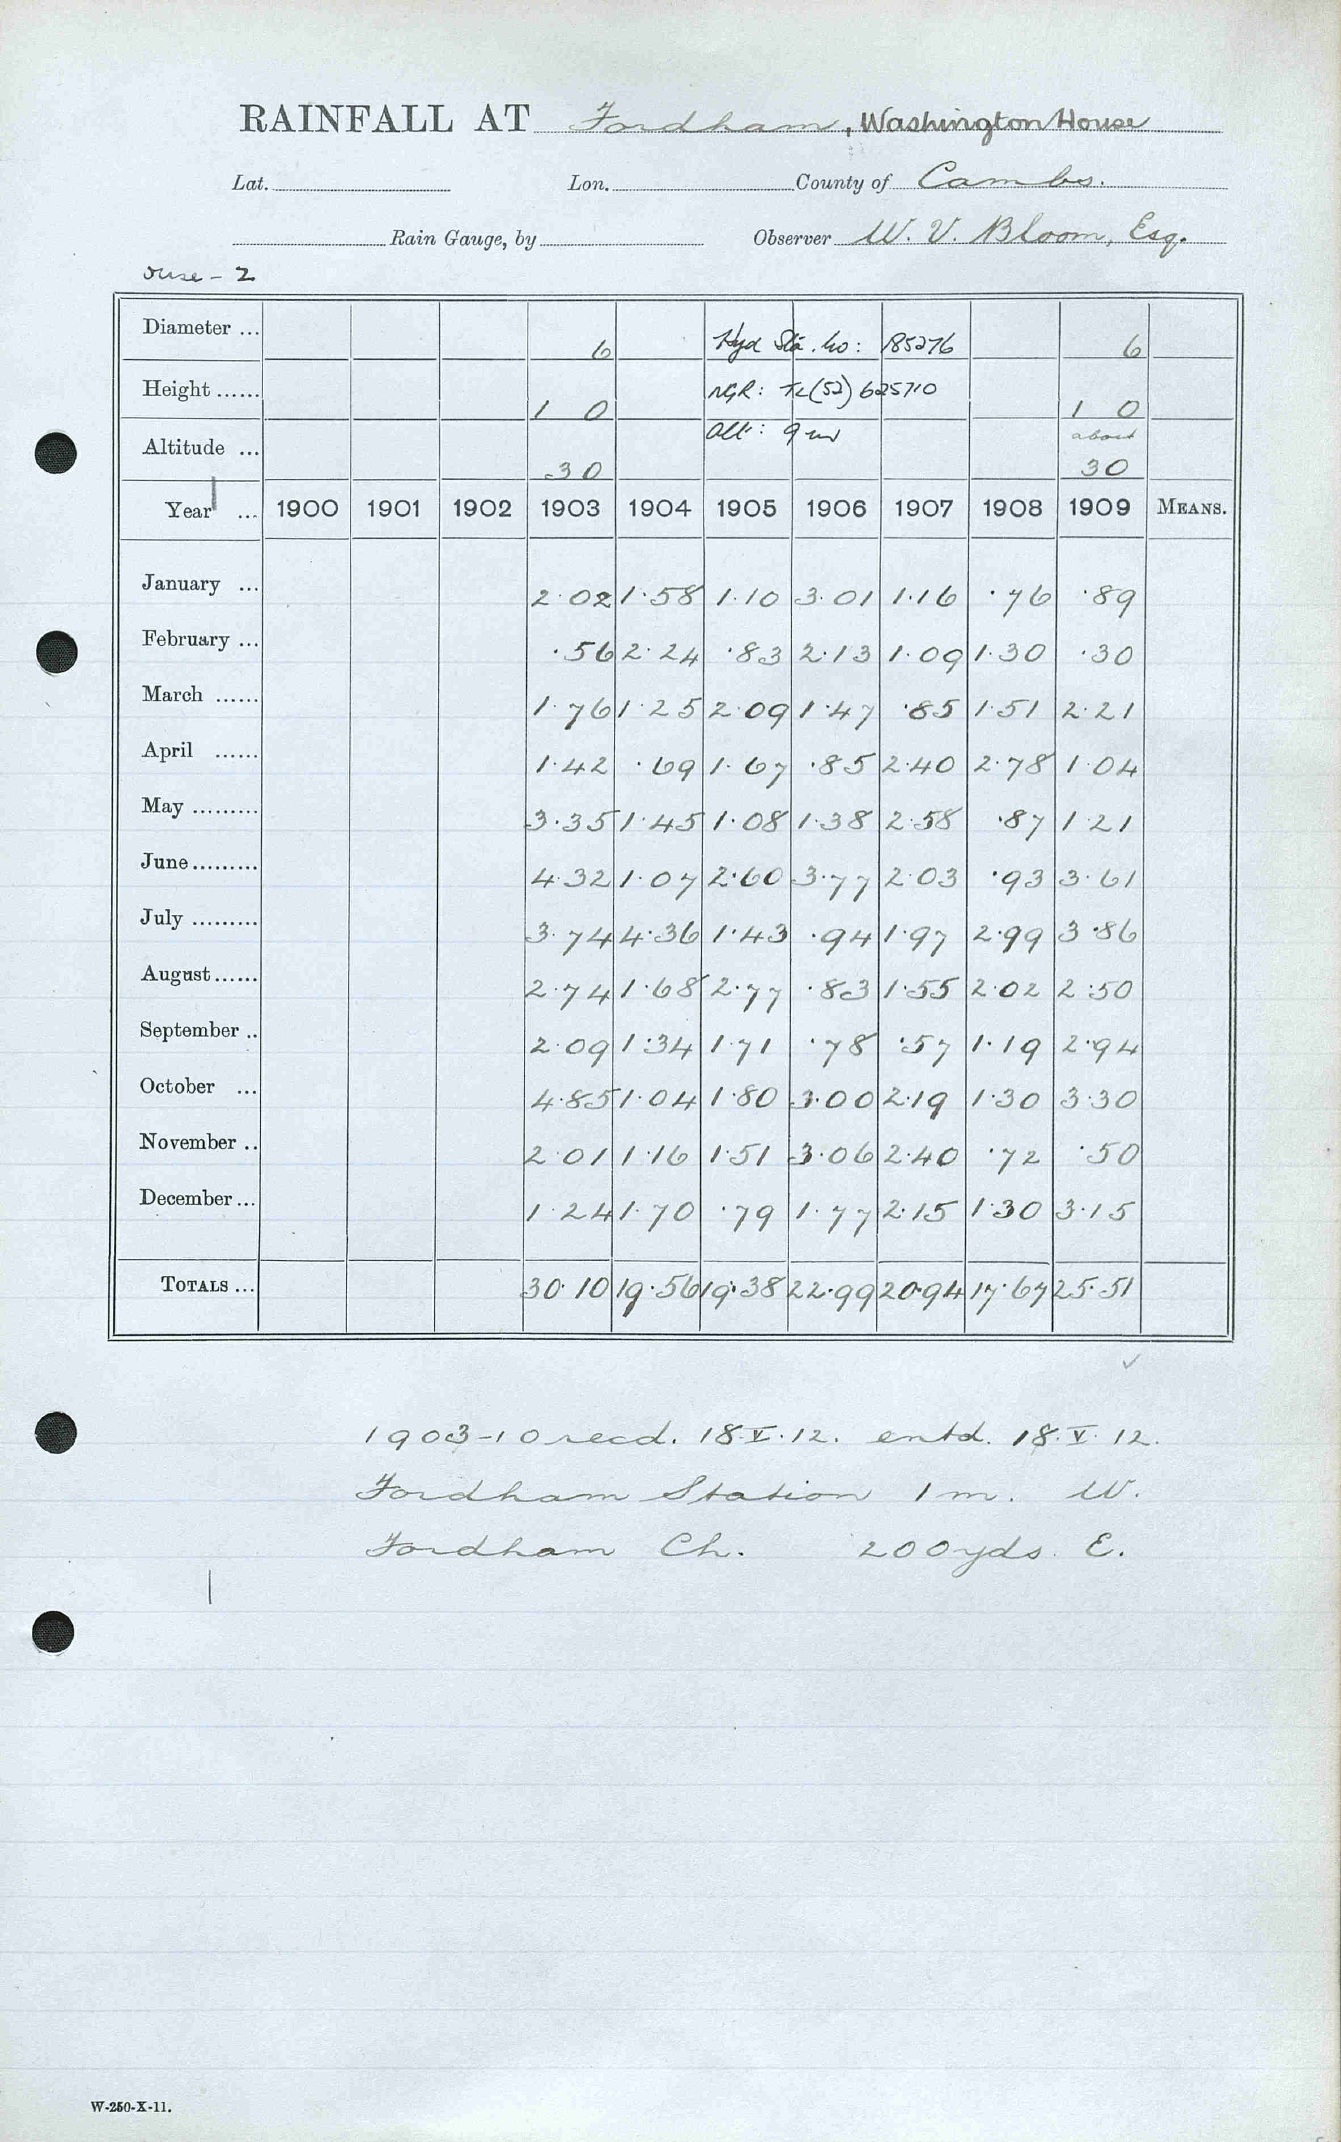 RAINFALL AT Fordham, Washington House
Lat. Lon. County of Cambs.
Rain Gauge, by Observer W. V. Bloom, Esq.
Ouse - 2
Diameter ... 6 Hyd Sta. No: 185276 6
Height ...... 1 0 NGR: TL(52) 625710 1 0
Altitude ... 30 Alt: 9m about 30
Year ... 1900 1901 1902 1903 1904 1905 1906 1907 1908 1909 MEANS.
January ... 2.02 1.58 1.10 3.01 1.16 .76 .89
February ... .56 2.24 .83 2.13 1.09 1.30 .30
March ...... 1.76 1.25 2.09 1.47 .85 1.51 2.21
April ...... 1.42 .69 1.67 .85 2.40 2.78 1.04
May ......... 3.35 1.45 1.08 1.38 2.58 .87 1.21
June ......... 4.32 1.07 2.60 3.77 2.03 .93 3.61
July ......... 3.74 4.36 1.43 .94 1.97 2.99 3.86
August ...... 2.74 1.68 2.77 .83 1.55 2.02 2.50
September .. 2.09 1.34 1.71 .78 .57 1.19 2.94
October ... 4.85 1.04 1.80 3.00 2.19 1.30 3.30
November .. 2.01 1.16 1.51 3.06 2.40 .72 .50
December ... 1.24 1.70 .79 1.77 2.15 1.30 3.15
TOTALS ... 30.10 19.56 19.38 22.99 20.94 17.67 25.51
1903-10 recd. 18.V.12. entd. 18.V.12.
Fordham Station 1 m. W.
Fordham Ch. 200 yds. E.
W-250-X-11.